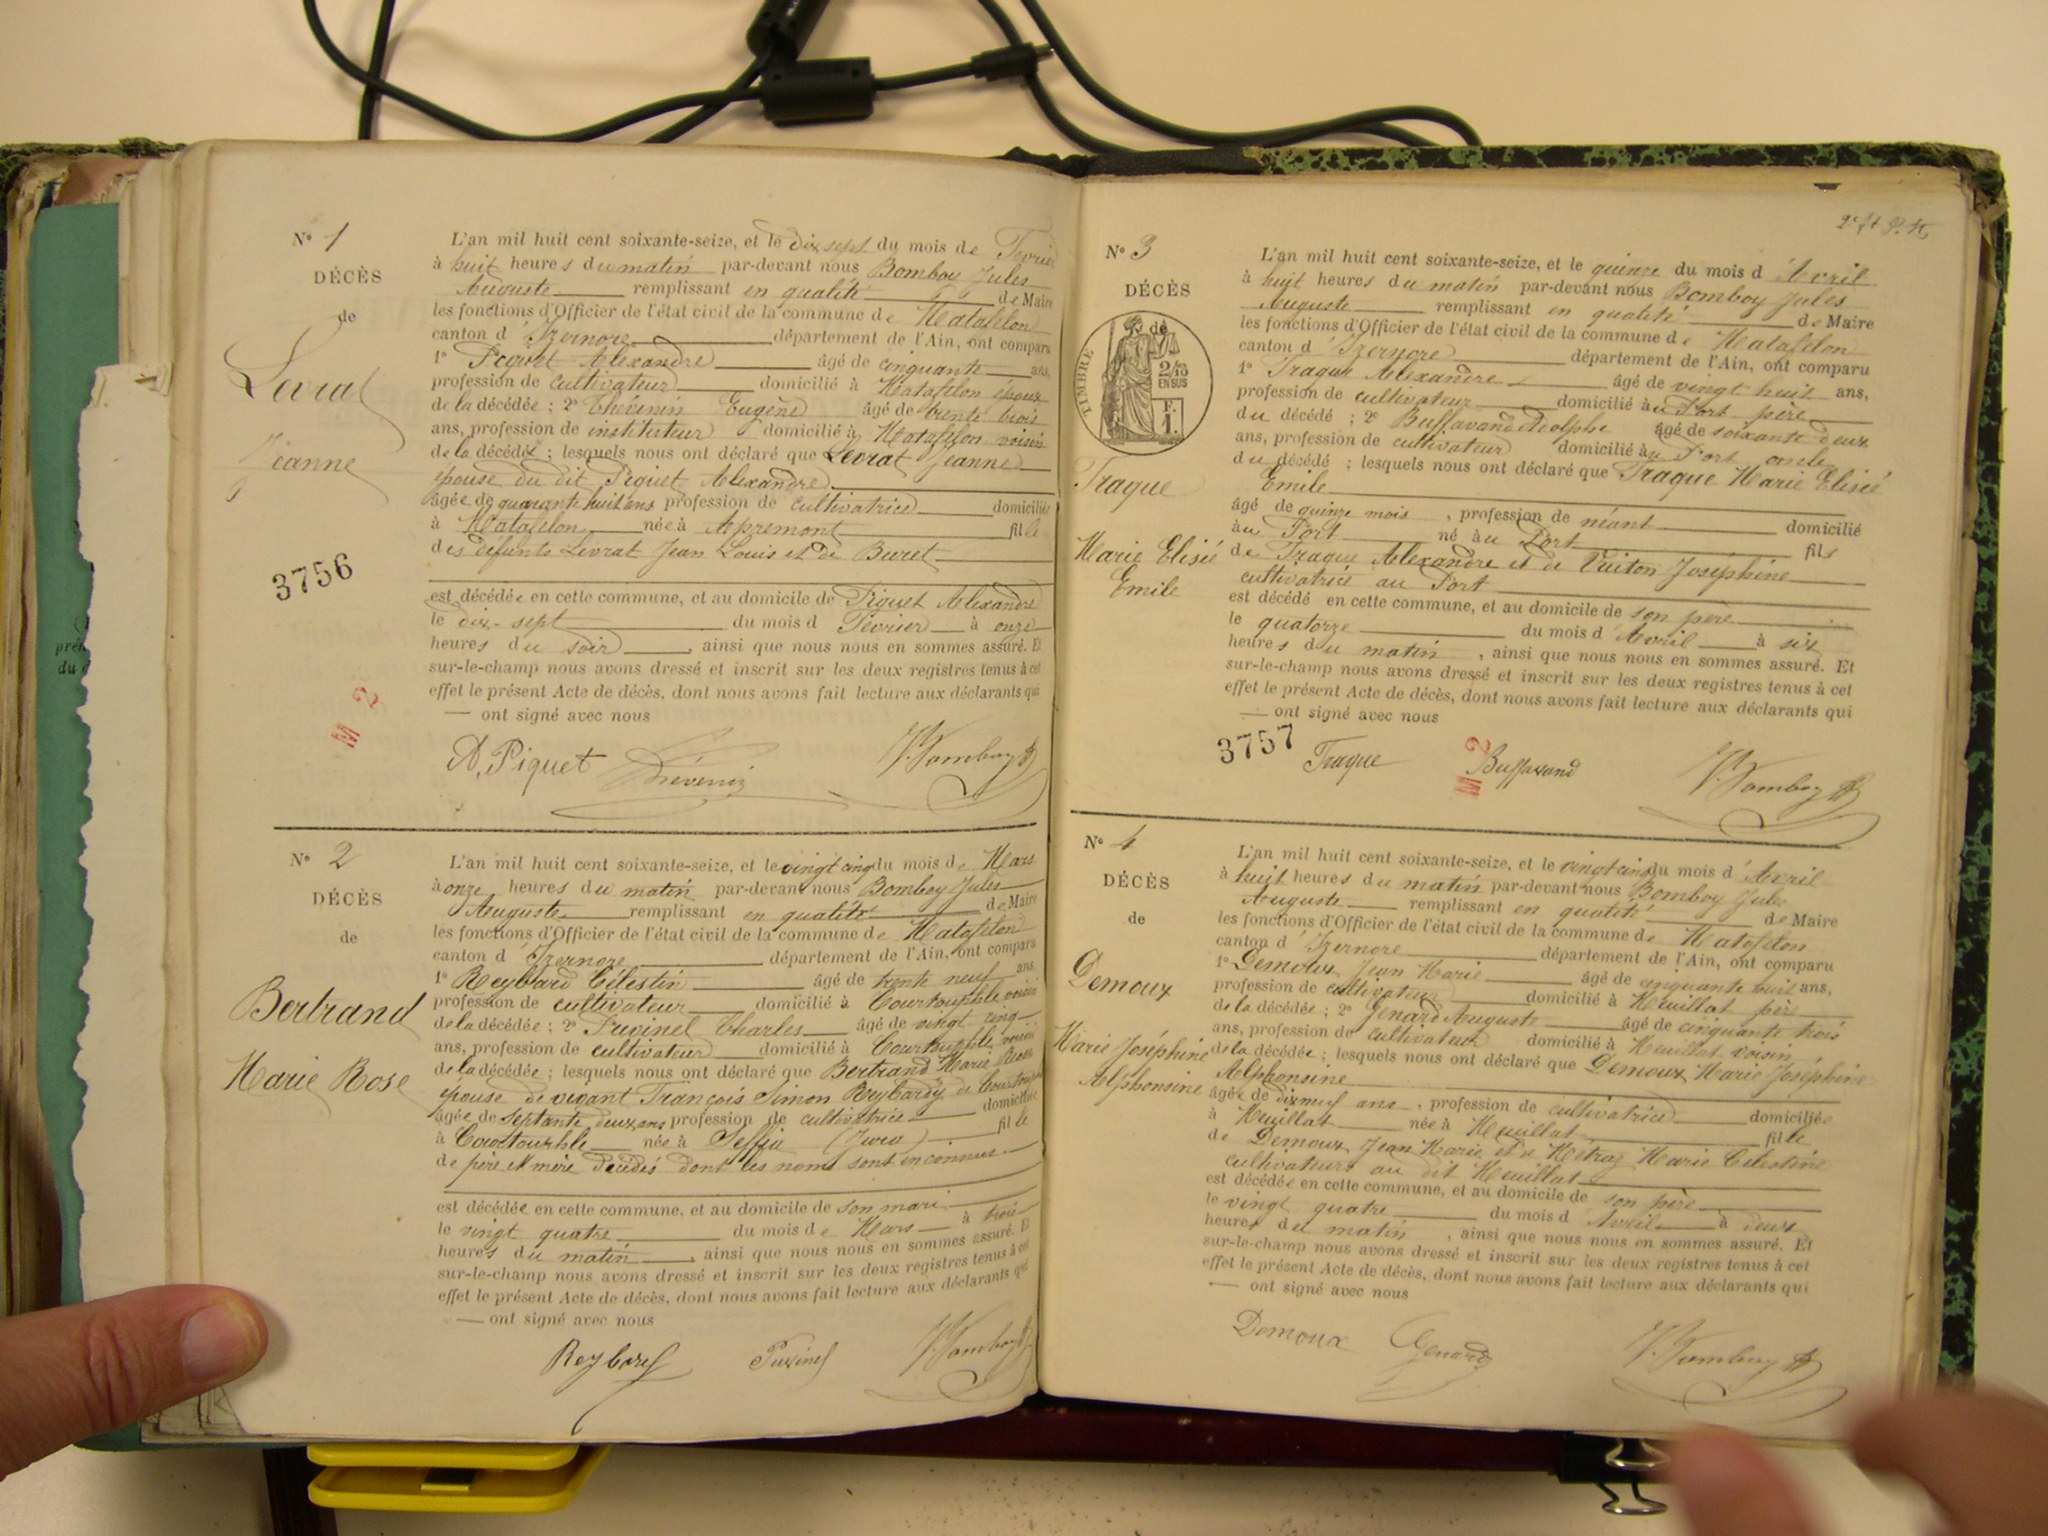 N° 1
DÉCÈS
de
Levrat
Jeanne
3756
M 2
L'an mil huit cent soixante-seize, et le dix sept du mois de Février
à huit heures du matin par-devant nous Bomboy Jules
Auguste remplissant en qualité de Maire
les fonctions d'Officier de l'état civil de la commune de Matafelon
canton d'Izernore département de l'Ain, ont comparu
1° Piquet Alexandre âgé de cinquante ans,
profession de cultivateur domicilié à Matafelon époux
de la décédée ; 2° Thévenin Eugène âgé de trente trois
ans, profession de instituteur domicilié à Matafelon voisin
de la décédée ; lesquels nous ont déclaré que Levrat Jeanne
épouse du dit Piquet Alexandre
âgée de quarante huit ans profession de cultivatrice domiciliée
à Matafelon née à Apremont fille
des defunts Levrat Jean Louis et de Buret
est décédée en cette commune, et au domicile de Piquet Alexandre
le dix-sept du mois de Février à onze
heures du soir, ainsi que nous nous en sommes assuré. Et
sur-le-champ nous avons dressé et inscrit sur les deux registres tenus à cet
effet le présent Acte de décès, dont nous avons fait lecture aux déclarants qui
— ont signé avec nous
A, Piquet Thévenin J. Bomboy
N° 2
DÉCÈS
de
Bertrand
Marie Rose
L'an mil huit cent soixante-seize, et le vingt cinq du mois de Mars
à onze heures du matin par-devant nous Bomboy Jules
Auguste remplissant en qualité de Maire
les fonctions d'Officier de l'état civil de la commune de Matafelon
canton d'Izernore département de l'Ain, ont comparu
1° Reybard Célestin âgé de trente neuf ans
profession de cultivateur domicilié à Courtouphle voisin
de la décédée ; 2° Puvinel Charles âgé de vingt cinq
ans, profession de cultivateur domicilié à Courtouphle voisin
de la décédée ; lesquels nous ont déclaré que Bertrand Marie Rose
épouse de vivant François Simon Reybard de Courtouphle
âgée de septante deux ans profession de cultivatrice domiciliée
à Courtouphle née à (Jura) fille
de père et mère décédés dont les noms sont inconnus
est décédée en cette commune, et au domicile de son mari
le vingt quatre du mois de Mars à trois
heures du matin, ainsi que nous nous en sommes assuré. Et
sur-le-champ nous avons dressé et inscrit sur les deux registres tenus à cet
effet le présent Acte de décès, dont nous avons fait lecture aux déclarants qui
— ont signé avec nous
Reybard Puvinel J. Bomboy
N° 3
DÉCÈS
de
TIMBRE
2/10
EN SUS
F.
1.
Traque
Marie Elisée
Emile
L'an mil huit cent soixante-seize, et le quinze du mois d'Avril
à huit heures du matin par-devant nous Bomboy Jules
Auguste remplissant en qualité de Maire
les fonctions d'Officier de l'état civil de la commune de Matafelon
canton d'Izernore département de l'Ain, ont comparu
1° Traque Alexandre âgé de vingt huit ans,
profession de cultivateur domicilié au Port père
du décédé ; 2° Buffavand Adolphe âgé de soixante deux
ans, profession de cultivateur domicilié au Port oncle
du décédé ; lesquels nous ont déclaré que Traque Marie Elisée
Emile
âgé de quinze mois, profession de néant domicilié
au Port né au Port fils
de Traque Alexandre et de Vuiton Joséphine
cultivatrice au Port
est décédé en cette commune, et au domicile de son père
le quatorze du mois d'Avril à six
heures du matin, ainsi que nous nous en sommes assuré. Et
sur-le-champ nous avons dressé et inscrit sur les deux registres tenus à cet
effet le présent Acte de décès, dont nous avons fait lecture aux déclarants qui
— ont signé avec nous
3757 Traque M 2 Buffavand J. Bomboy
N° 4
DÉCÈS
de
Demoux
Marie Joséphine
Alphonsine
L'an mil huit cent soixante-seize, et le vingt cinq du mois d'Avril
à huit heures du matin par-devant nous Bomboy Jules
Auguste remplissant en qualité de Maire
les fonctions d'Officier de l'état civil de la commune de Matafelon
canton d'Izernore département de l'Ain, ont comparu
1° Demoux Jean Marie âgé de cinquante huit ans,
profession de cultivateur domicilié à Heuillat père
de la décédée ; 2° Genard Auguste âgé de cinquante trois
ans, profession de cultivateur domicilié à Heuillat voisin
de la décédée ; lesquels nous ont déclaré que Demoux Marie Joséphine
Alphonsine
âgée de dix neuf ans, profession de cultivatrice domiciliée
à Heuillat née à Heuillat fille
de Demoux Jean Marie et de Métraz Marie Célestine
cultivateurs au dit Heuillat
est décédée en cette commune, et au domicile de son père
le vingt quatre du mois d'Avril à deux
heures du matin, ainsi que nous nous en sommes assuré. Et
sur-le-champ nous avons dressé et inscrit sur les deux registres tenus à cet
effet le présent Acte de décès, dont nous avons fait lecture aux déclarants qui
— ont signé avec nous
Demoux Genard J. Bomboy